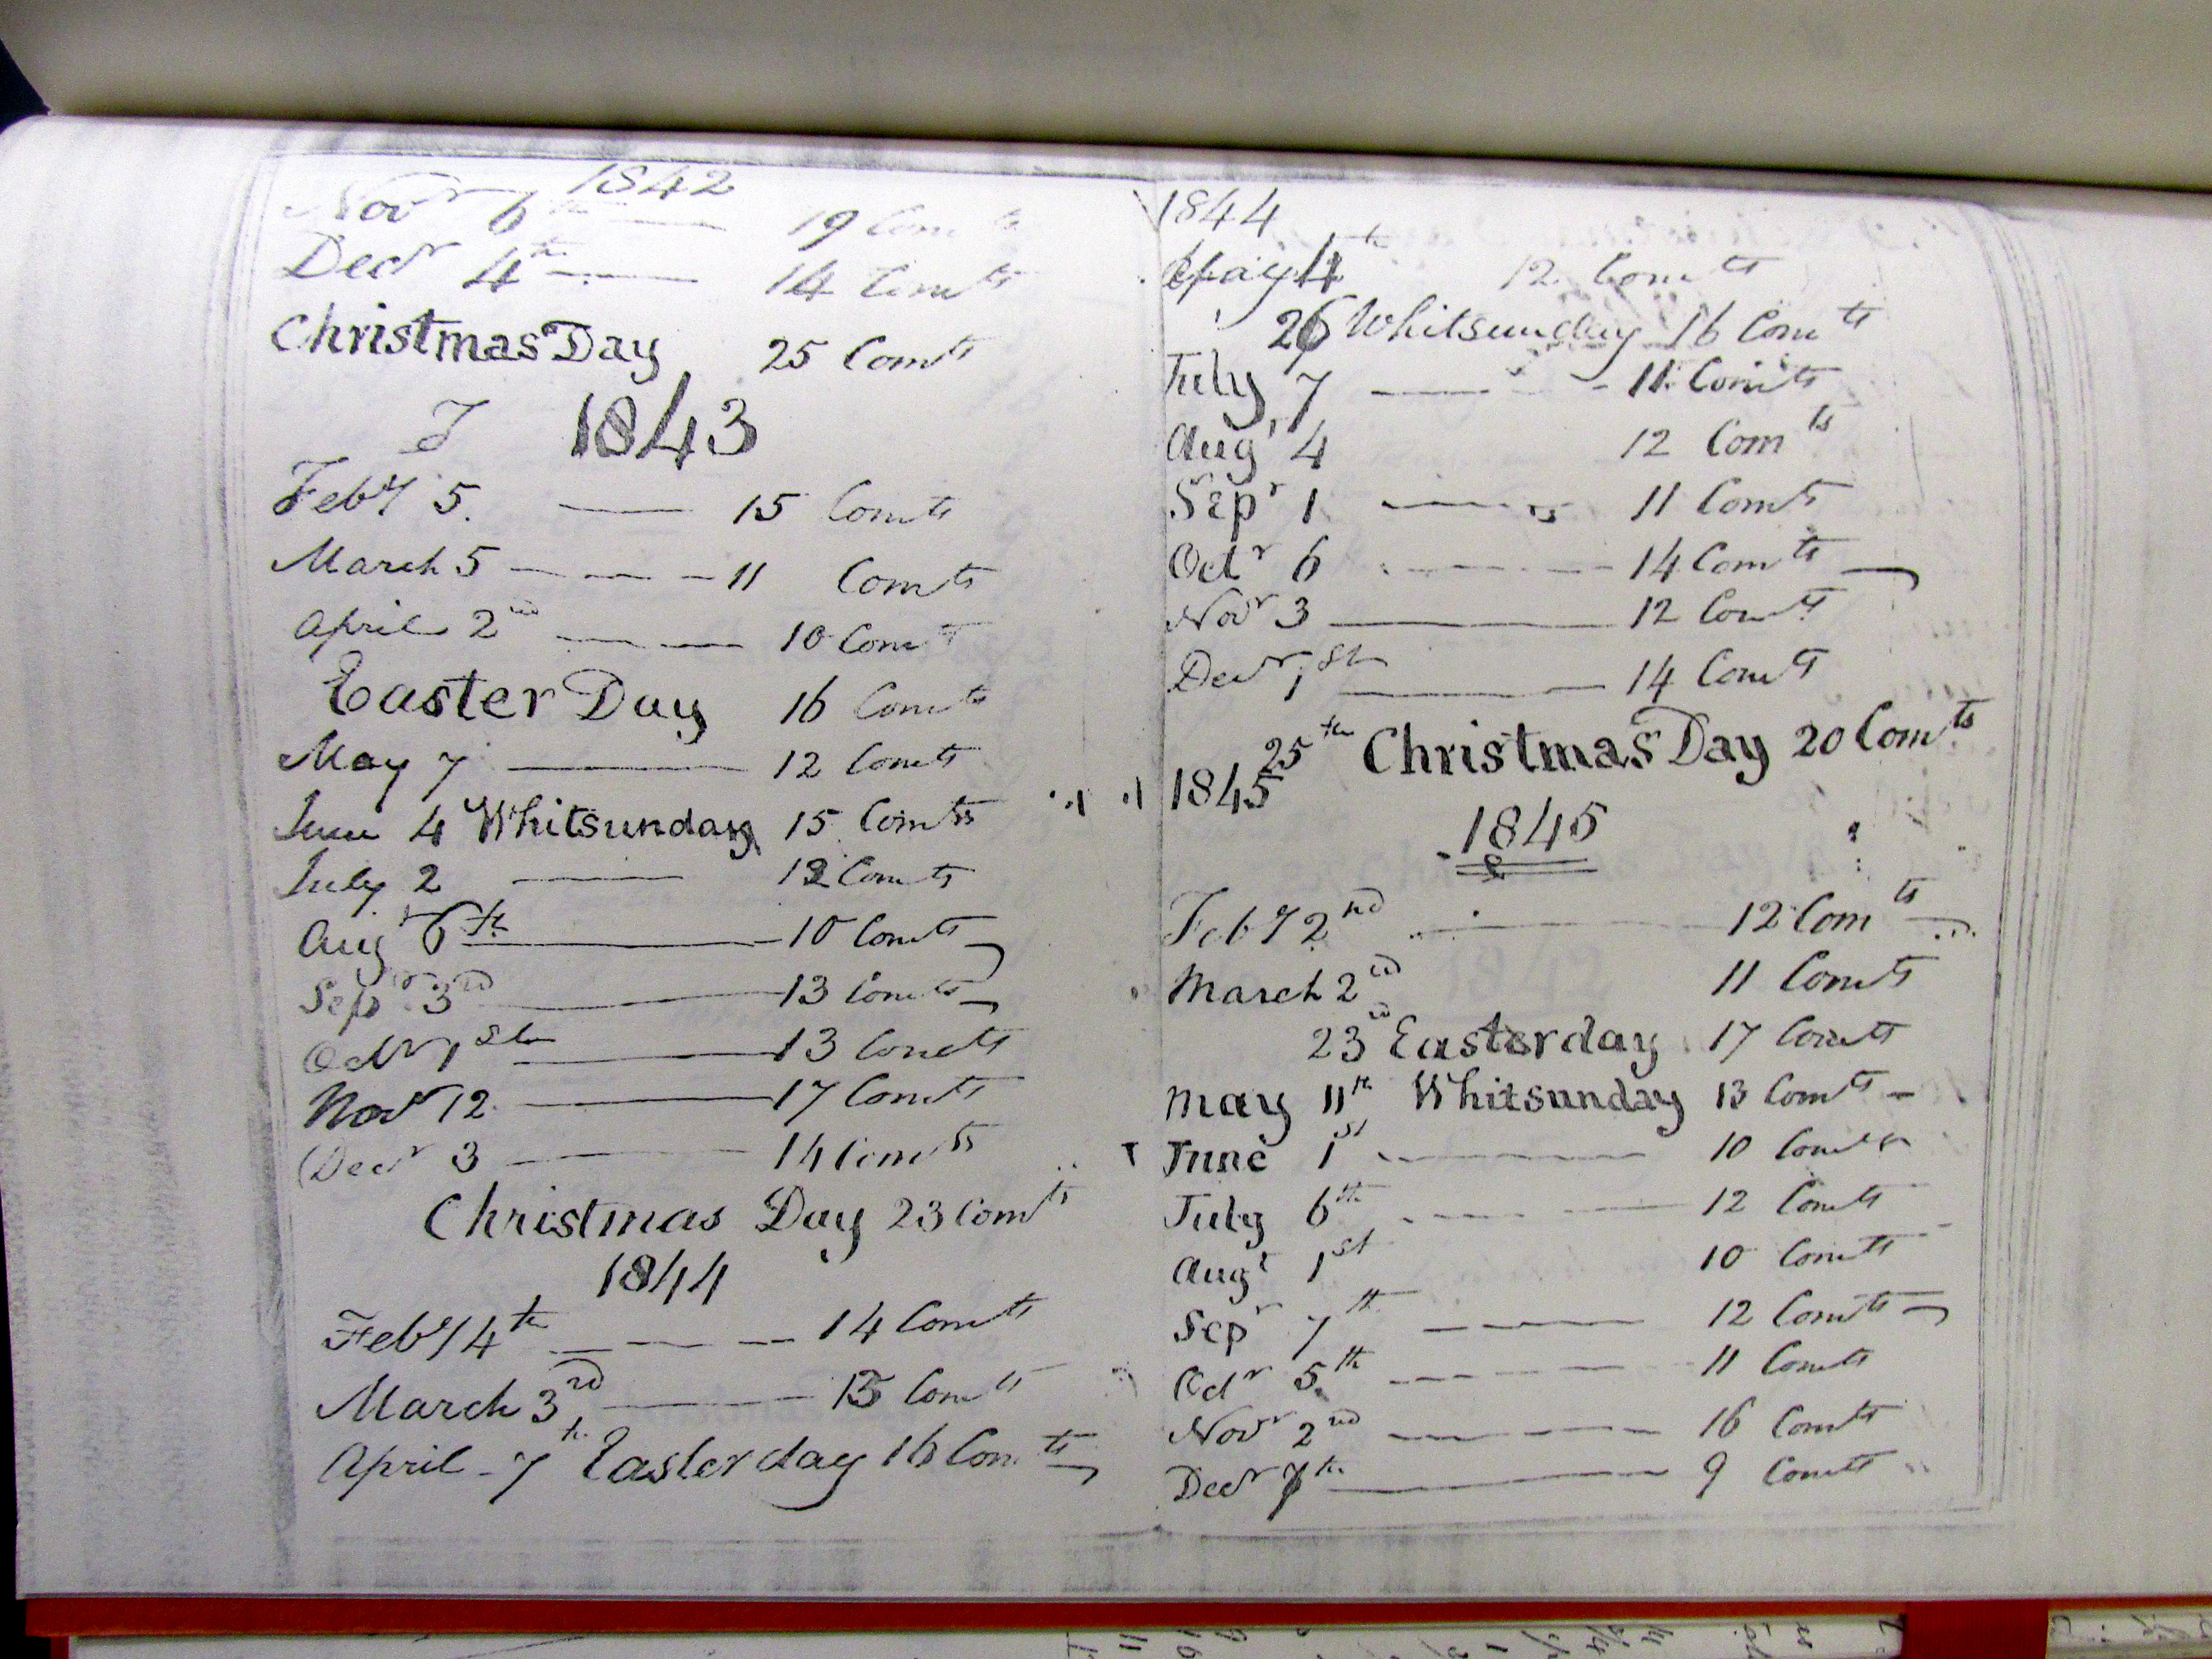 1842
Novr 6th 19 Comts
Decr 4th 14 Comts
Christmas Day 25 Comts
1843
Feby 5. 15 Comts
March 5 11 Comts
April 2nd 10 Comts
Easter Day 16 Comts
May 7 12 Comts
June 4 Whitsunday 15 Comts
July 2 12 Comts
Augt 6th 10 Comts
Sepr 3rd 13 Comts
Octr 1st 13 Comts
Novr 12 17 Comts
Decr 3 14 Comts
Christmas Day 23 Comts
1844
Feby 4th 14 Comts
March 3rd Comts
April 7th Easter day 16 Comts
1844
May 4th 12 Comts
26 Whitsunday 16 Comts
July 7 11 Comts
Augt 4 12 Comts
Sepr 1 11 Comts
Octr 6 14 Comts
Novr 3 12 Comts
Decr 1st 14 Comts
25th Christmas Day 20 Comts
1845
1845
Feby 2nd 12 Comts
March 2nd 11 Comts
23rd Easterday 17 Comts
May 11th Whitsunday 13 Comts
June 1st 10 Comts
July 6th 12 Comts
Augt 1st 10 Comts
Sepr 7th 12 Comts
Octr 5th 11 Comts
Novr 2nd 16 Comts
Decr 7th 9 Comts